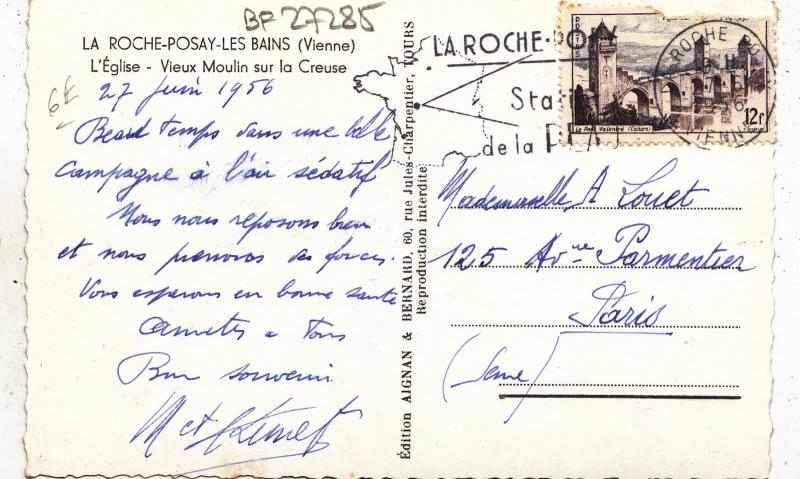 BF 27285
LA ROCHE-POSAY-LES BAINS (Vienne)
L'Église - Vieux Moulin sur la Creuse
6€
27 Juin 1956
Beau temps dans une belle
campagne à l'air sédatif
Nous nous reposons bien
et nous prenons des forces.
Vous espérons en bonne santé
Amitiés à tous
Bon souvenir
M et
Édition AIGNAN & BERNARD, 60, rue Jules-Charpentier, TOURS
Reproduction interdite
LA ROCHE-POSAY
Sta
de la PEAU
POSTES
Le Pont Valentré (Cahors)
12f
ROCHE PO
1956
VIENNE
Mademoiselle A Louet
125 Avnue Parmentier
Paris
(Seine)